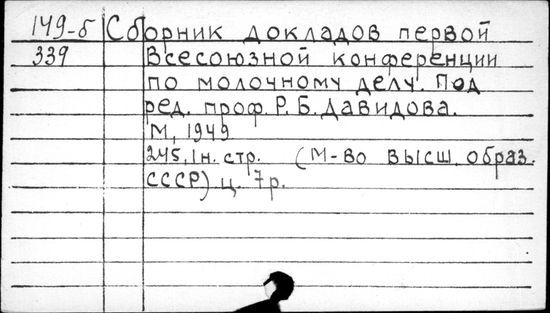 149-б Сборник докладов первой
339 Всесоюзной конференции
по молочному делу. Под
ред. проф. Р. Б. Давидова.
М, 1949
245, 1н. стр. (М-во высш. образ.
СССР) ц. 7р.